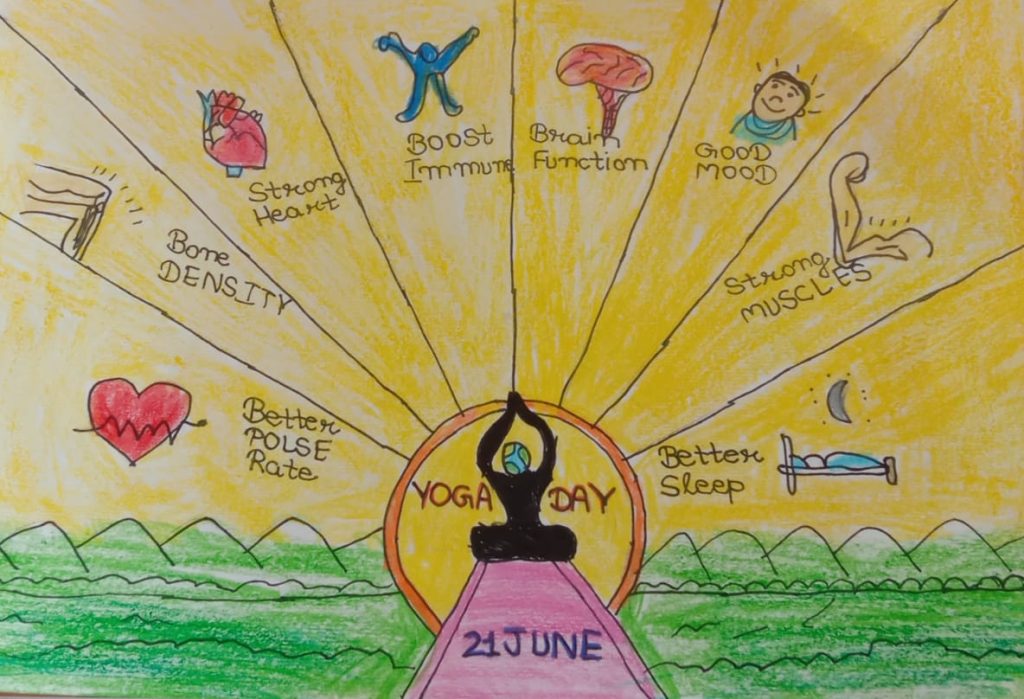 BOOSt
Immune
Brain
Function
GOOD
MOOD
Strong
Heart
Bone
DENSITY
Strong
MUSCLES
Better
POLSE
Rate
Better
Sleep
YOGA DAY
21 JUNE